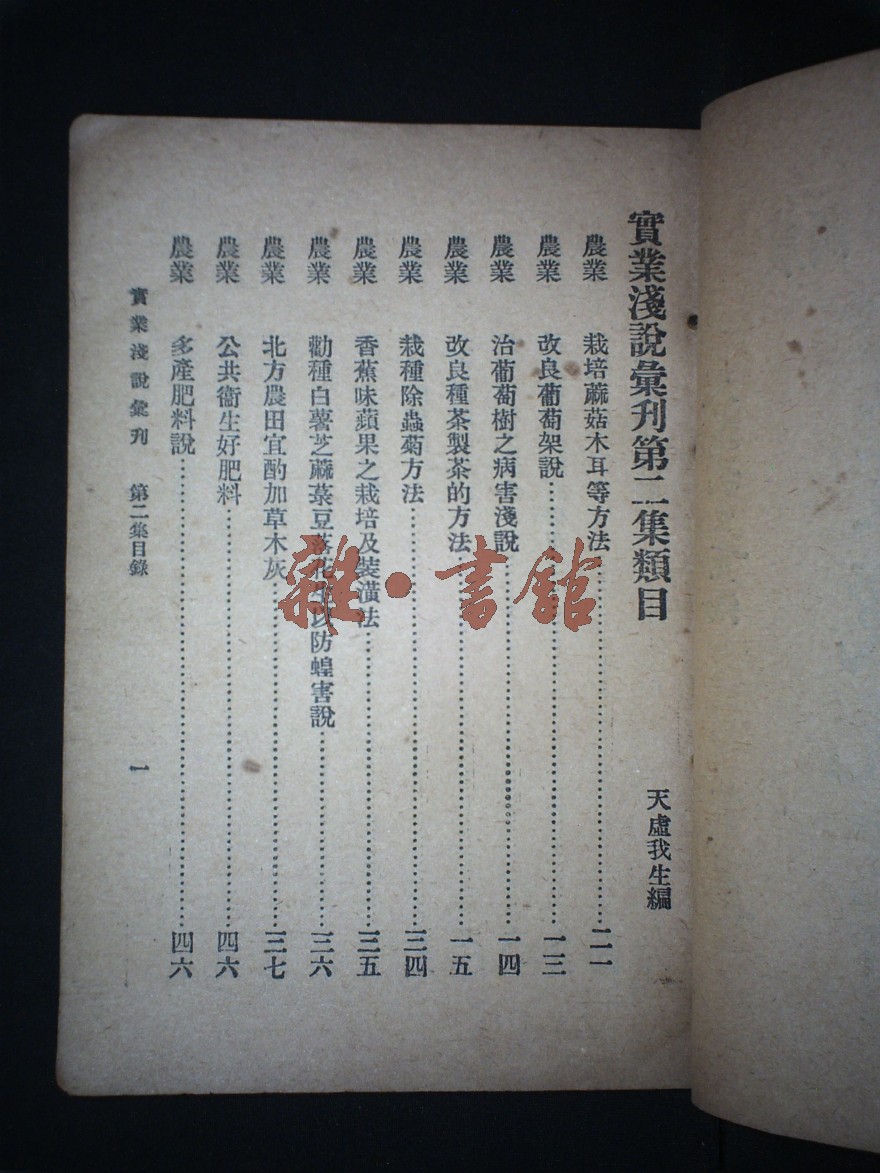 實業淺說彙刊第二集類目
天虛我生編
農業 栽培蔴菇木耳等方法……二一
農業 改良葡萄架說……一三
農業 治葡萄樹之病害淺說……一四
農業 改良種茶製茶的方法……一五
農業 栽種除蟲菊方法……三四
農業 香蕉味蘋果之栽培及裝潢法……三五
農業 勸種白薯芝蔴菉豆落花生以防蝗害說……三六
農業 北方農田宜酌加草木灰……三七
農業 公共衞生好肥料……四六
農業 多產肥料說……四六
實業淺說彙刊 第二集目錄 一
雜·書館